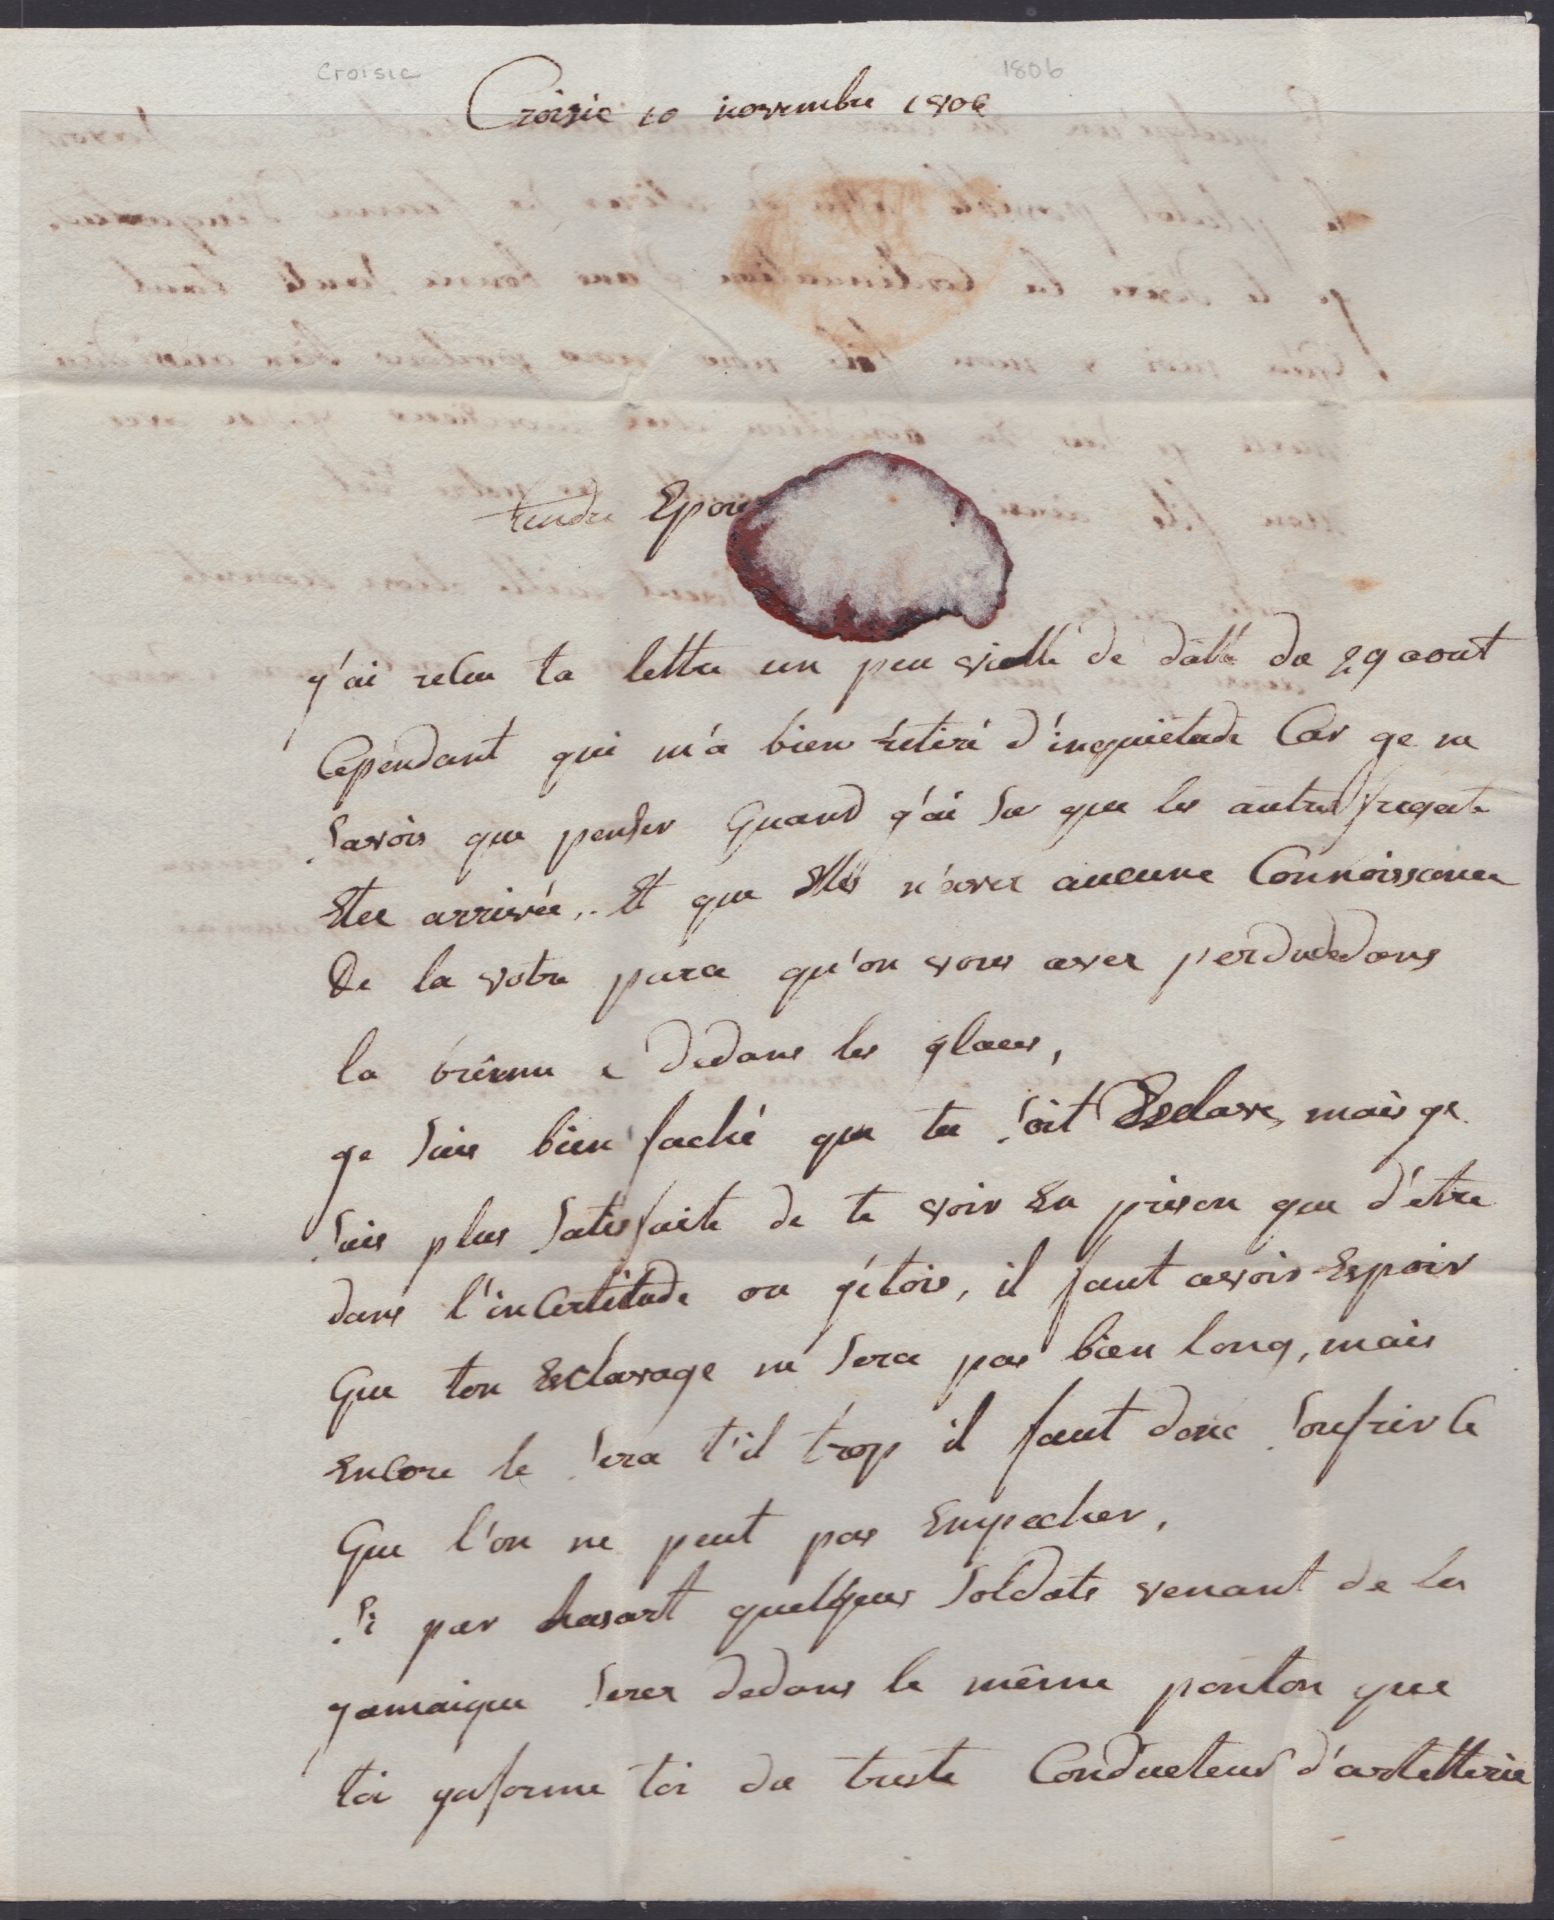 Croisic 1806
Croisic 10 novembre 1806
tendre Epou
j'ai reçu ta lettre un peu vielle de datte du 29 aout
Cependant qui m'a bien retiré d'inquietude Car je ne
savois que penser quand j'ai su que les autres fregate
Etee arrivée,. Et que Elles n'avez aucune Connoissance
De la votre parce qu'on vous avez perdu dedans
la brême e dedans les glaces,
je suis bien faché que tu soit Esclave, mais je
suis plus satisfaite de te voir En prison que d'etre
dans l'inCertitude ou j'étois, il faut avoir Espoir
que ton Esclavage ne sera pas bien long, mais
Encore le sera t'il trop il faut donc soufrir Ce
que l'on ne peut pas Empecher,
si par hasart quelques soldats venant de la
jamaique serez dedans le même ponton que
toi ynforme toi du triste Conducteur d'artellerie